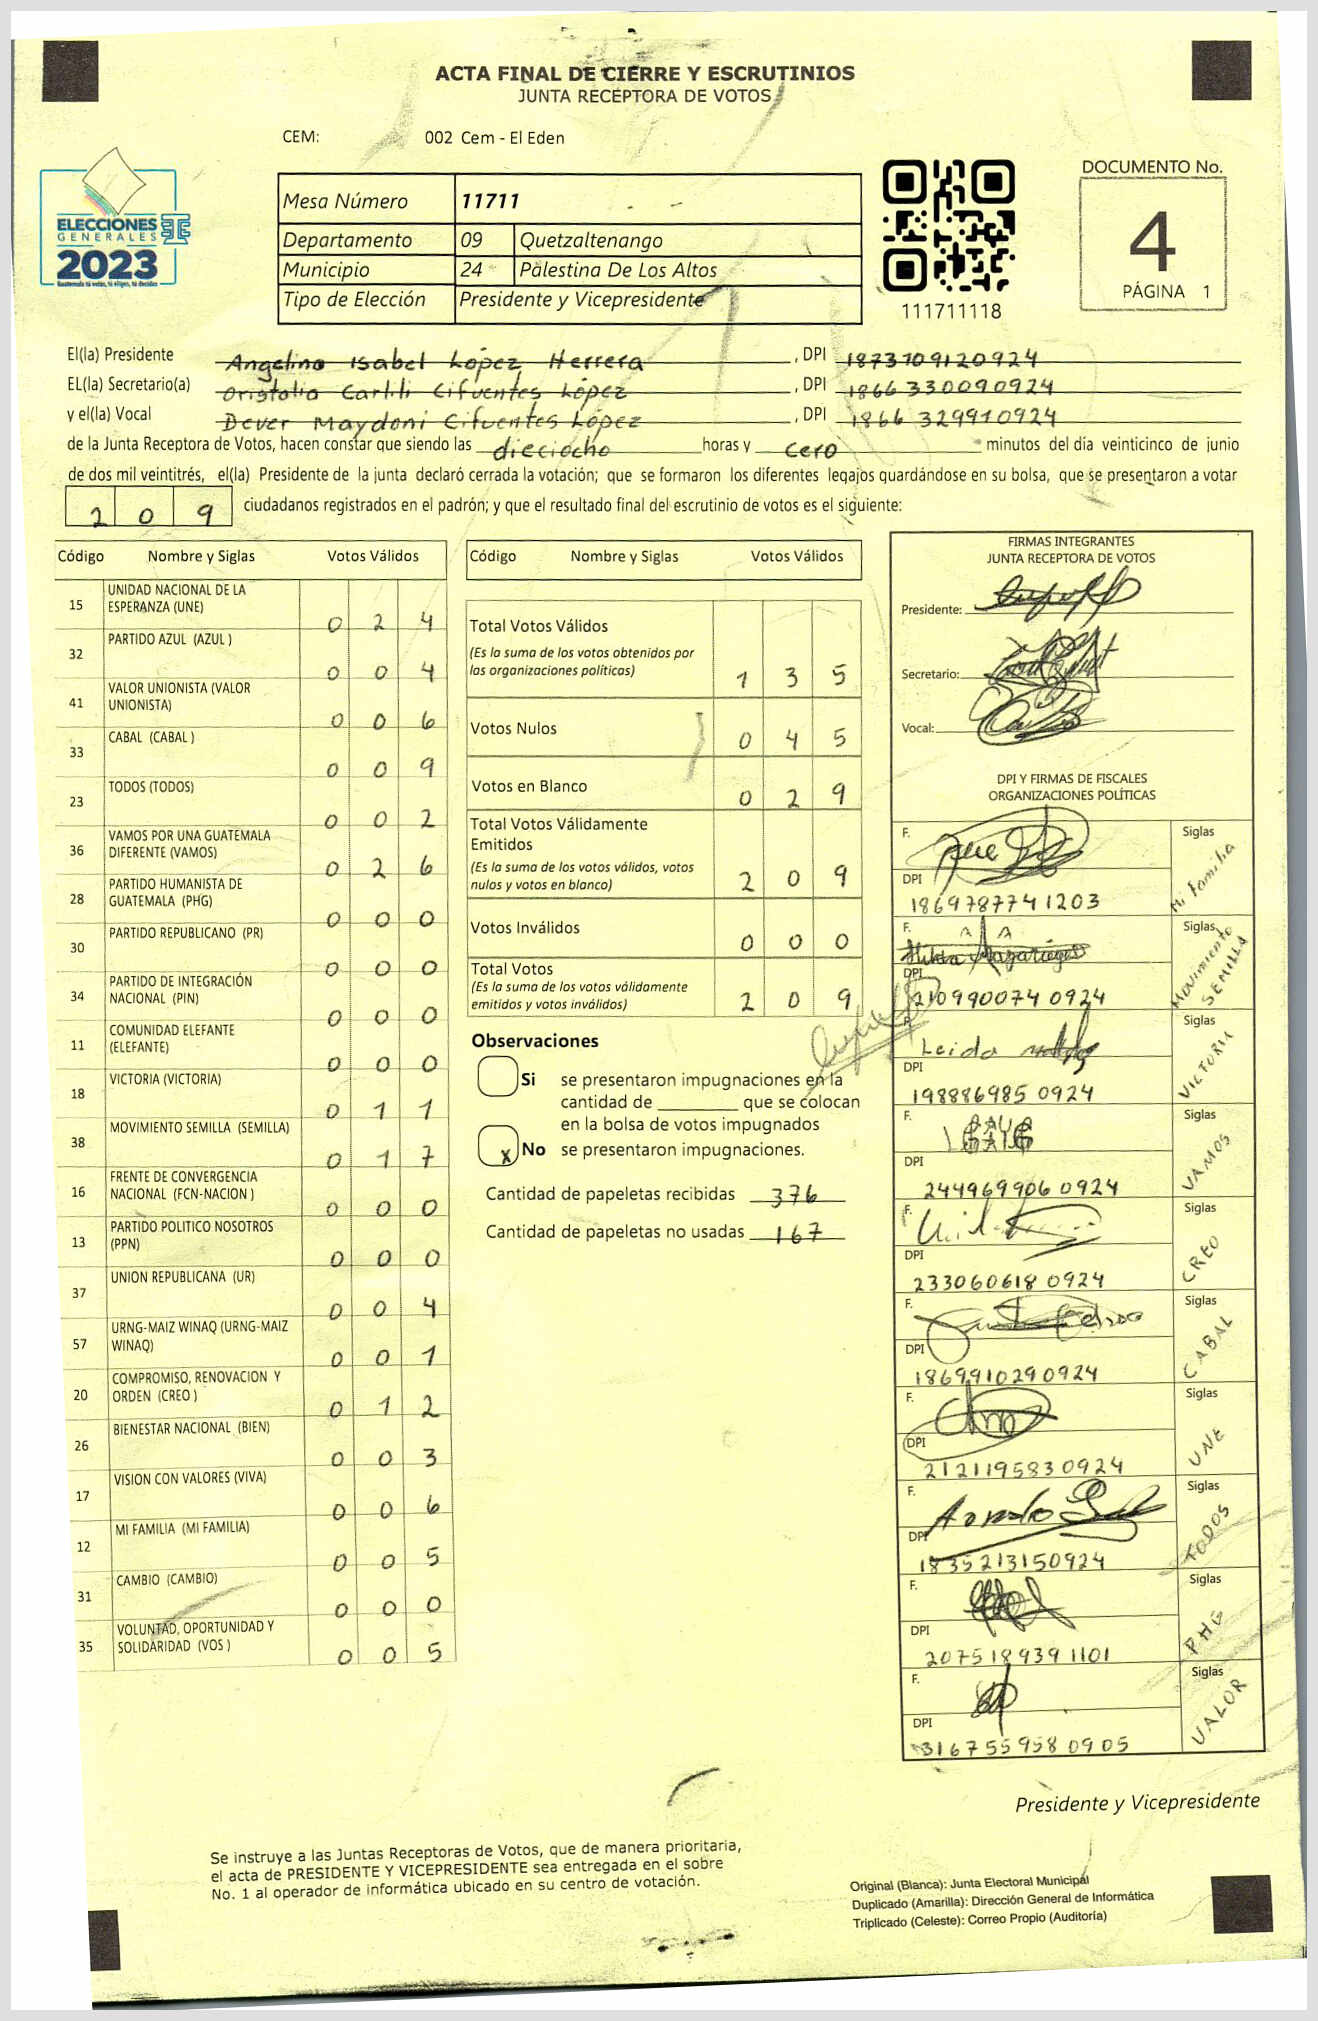 ACTA FINAL DE CIERRE Y ESCRUTINIOS
JUNTA RECEPTORA DE VOTOS
CEM: 002 Cem - El Eden
ELECCIONES
GENERALES
2023
Guatemala tú votas, tú eliges, tú decides
Mesa Número 11711
Departamento 09 Quetzaltenango
Municipio 24 Palestina De Los Altos
Tipo de Elección Presidente y Vicepresidente
111711118
DOCUMENTO No.
4
PÁGINA 1
El(la) Presidente Angelino Isabel López Herrera, DPI 1873109120924
EL(la) Secretario(a) Oristalia Carlili Cifuentes López, DPI 1866 330090924
y el(la) Vocal Dever Maydoni Cifuentes López, DPI 1866 329910924
de la Junta Receptora de Votos, hacen constar que siendo las dieciocho horas y cero minutos del día veinticinco de junio
de dos mil veintitrés, el(la) Presidente de la junta declaró cerrada la votación; que se formaron los diferentes legajos guardándose en su bolsa, que se presentaron a votar
209 ciudadanos registrados en el padrón; y que el resultado final del escrutinio de votos es el siguiente:
Código Nombre y Siglas Votos Válidos
15 UNIDAD NACIONAL DE LA ESPERANZA (UNE) 0 2 4
32 PARTIDO AZUL (AZUL ) 0 0 4
41 VALOR UNIONISTA (VALOR UNIONISTA) 0 0 6
33 CABAL (CABAL ) 0 0 9
23 TODOS (TODOS) 0 0 2
36 VAMOS POR UNA GUATEMALA DIFERENTE (VAMOS) 0 2 6
28 PARTIDO HUMANISTA DE GUATEMALA (PHG) 0 0 0
30 PARTIDO REPUBLICANO (PR) 0 0 0
34 PARTIDO DE INTEGRACIÓN NACIONAL (PIN) 0 0 0
11 COMUNIDAD ELEFANTE (ELEFANTE) 0 0 0
18 VICTORIA (VICTORIA) 0 1 1
38 MOVIMIENTO SEMILLA (SEMILLA) 0 1 7
16 FRENTE DE CONVERGENCIA NACIONAL (FCN-NACION ) 0 0 0
13 PARTIDO POLITICO NOSOTROS (PPN) 0 0 0
37 UNION REPUBLICANA (UR) 0 0 4
57 URNG-MAIZ WINAQ (URNG-MAIZ WINAQ) 0 0 1
20 COMPROMISO, RENOVACION Y ORDEN (CREO ) 0 1 2
26 BIENESTAR NACIONAL (BIEN) 0 0 3
17 VISION CON VALORES (VIVA) 0 0 6
12 MI FAMILIA (MI FAMILIA) 0 0 5
31 CAMBIO (CAMBIO) 0 0 0
35 VOLUNTAD, OPORTUNIDAD Y SOLIDARIDAD (VOS ) 0 0 5
Código Nombre y Siglas Votos Válidos
Total Votos Válidos
(Es la suma de los votos obtenidos por
las organizaciones políticas) 1 3 5
Votos Nulos 0 4 5
Votos en Blanco 0 2 9
Total Votos Válidamente
Emitidos
(Es la suma de los votos válidos, votos
nulos y votos en blanco) 2 0 9
Votos Inválidos 0 0 0
Total Votos
(Es la suma de los votos válidamente
emitidos y votos inválidos) 2 0 9
Observaciones
Si se presentaron impugnaciones en la
cantidad de ________ que se colocan
en la bolsa de votos impugnados
x No se presentaron impugnaciones.
Cantidad de papeletas recibidas 376
Cantidad de papeletas no usadas 167
FIRMAS INTEGRANTES
JUNTA RECEPTORA DE VOTOS
Presidente:
Secretario:
Vocal:
DPI Y FIRMAS DE FISCALES
ORGANIZACIONES POLÍTICAS
F. Siglas Mi Familia
DPI 1869787741203
F. Siglas Movimiento SEMILLA
DPI 210990074 0924
F. Leida Siglas VICTORIA
DPI 198886985 0924
F. Siglas VAMOS
DPI 244969906 0924
F. Siglas CREO
DPI 233060618 0924
F. Siglas CABAL
DPI 1869910290924
F. Siglas UNE
DPI 2121195830924
F. Siglas TODOS
DPI 1835213150924
F. Siglas PHG
DPI 2075189391101
F. Siglas VALOR
DPI 316755958 0905
Presidente y Vicepresidente
Se instruye a las Juntas Receptoras de Votos, que de manera prioritaria,
el acta de PRESIDENTE Y VICEPRESIDENTE sea entregada en el sobre
No. 1 al operador de informática ubicado en su centro de votación.
Original (Blanca): Junta Electoral Municipal
Duplicado (Amarilla): Dirección General de Informática
Triplicado (Celeste): Correo Propio (Auditoría)